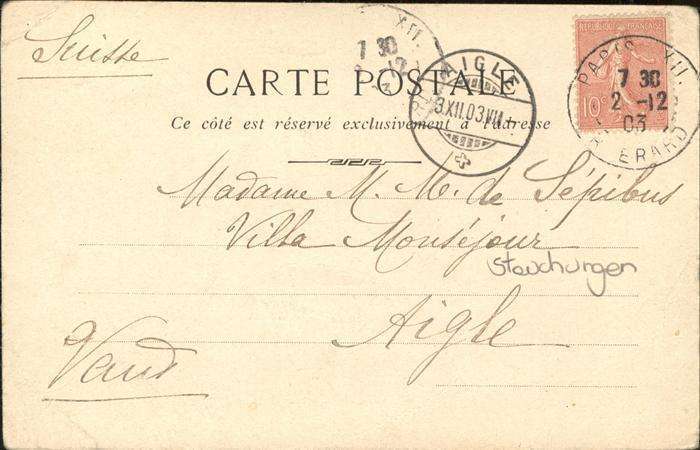 Suisse
CARTE POSTALE
Ce côté est réservé exclusivement à l'adresse
Madame M. M. de Sépibus
Villa Monséjour
Stauchungen
Aigle
Vaud
RÉPUBLIQUE FRANÇAISE
10
PARIS XII
7 30
2 -12
03
ERARD
XII
7 30
AIGLE
3.XII.03.VII